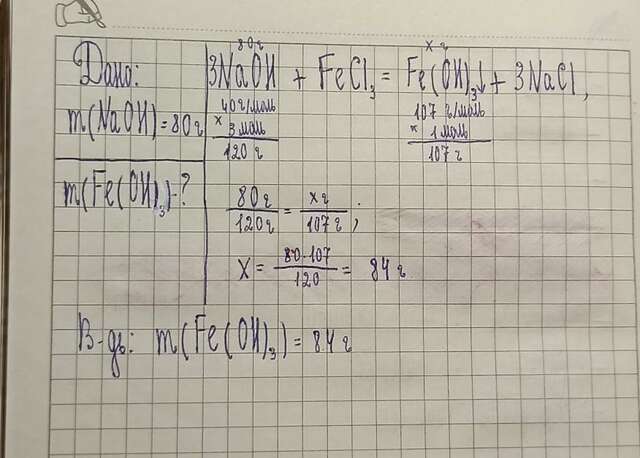 Дано:
m(NaOH)=80г
m(Fe(OH)₃)-?
80г xг
3NaOH + FeCl₃ = Fe(OH)₃↓ + 3NaCl,
40г/моль 107 г/моль
× 3моль × 1моль
120 г 107 г
80г/120г = xг/107г ;
X = 80·107/120 = 84 г
В-дь: m(Fe(OH)₃) = 84 г